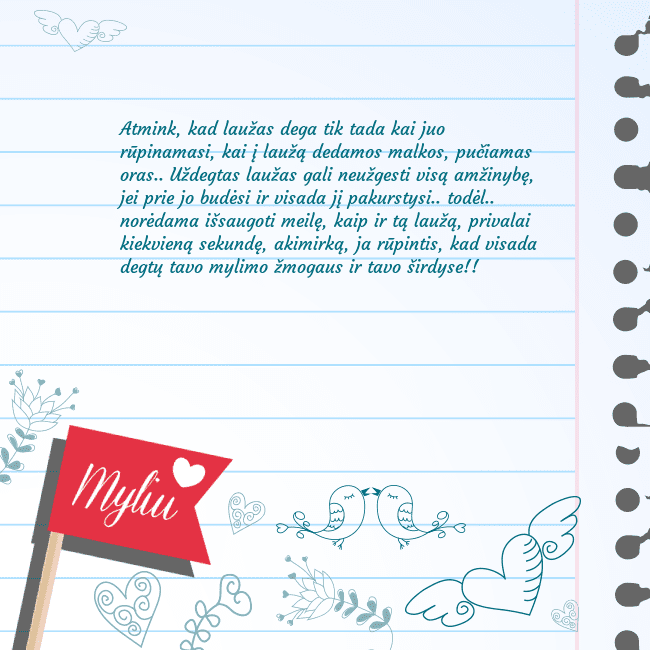 Atmink, kad laužas dega tik tada kai juo
rūpinamasi, kai į laužą dedamos malkos, pučiamas
oras.. Uždegtas laužas gali neužgesti visą amžinybę,
jei prie jo budėsi ir visada jį pakurstysi.. todėl..
norėdama išsaugoti meilę, kaip ir tą laužą, privalai
kiekvieną sekundę, akimirką, ja rūpintis, kad visada
degtų tavo mylimo žmogaus ir tavo širdyse!!
Myliu